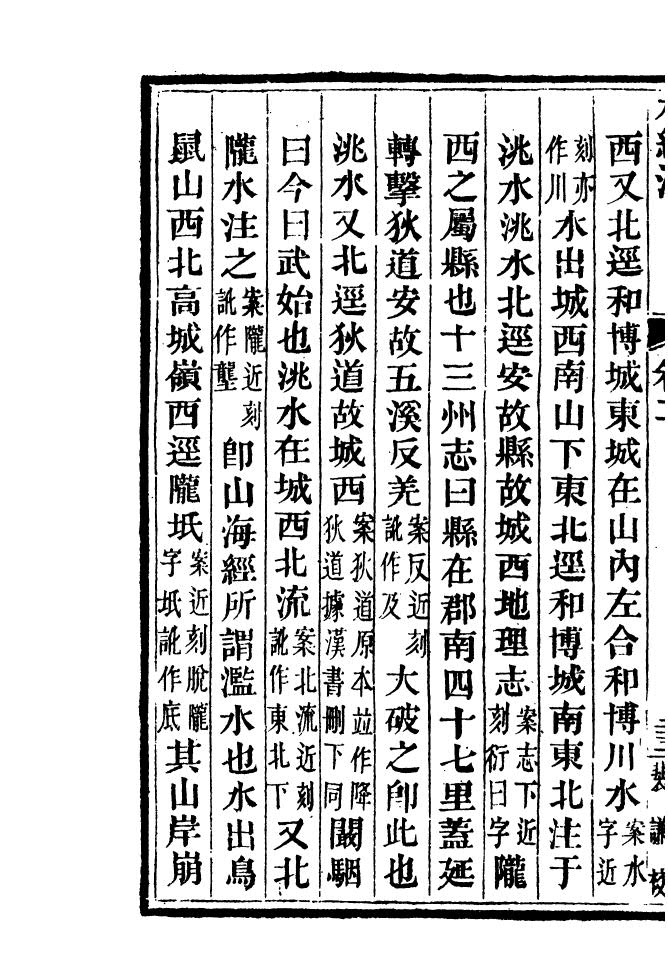 西又北逕和博城東城在山內左合和博川水案水字近
刻亦作川水出城西南山下東北逕和博城南東北注于
洮水洮水北逕安故縣故城西地理志案志下近刻衍曰字隴
西之屬縣也十三州志曰縣在郡南四十七里蓋延
轉擊狄道安故五溪反羌案反近刻訛作及大破之卽此也
洮水又北逕狄道故城西案狄道原本竝作降狄道據漢書刪下同闞駰
曰今曰武始也洮水在城西北流案北流近刻訛作東北下又北
隴水注之案隴近刻訛作壟卽山海經所謂濫水也水出鳥
鼠山西北高城嶺西逕隴坻案近刻脫隴字坻訛作底其山岸崩